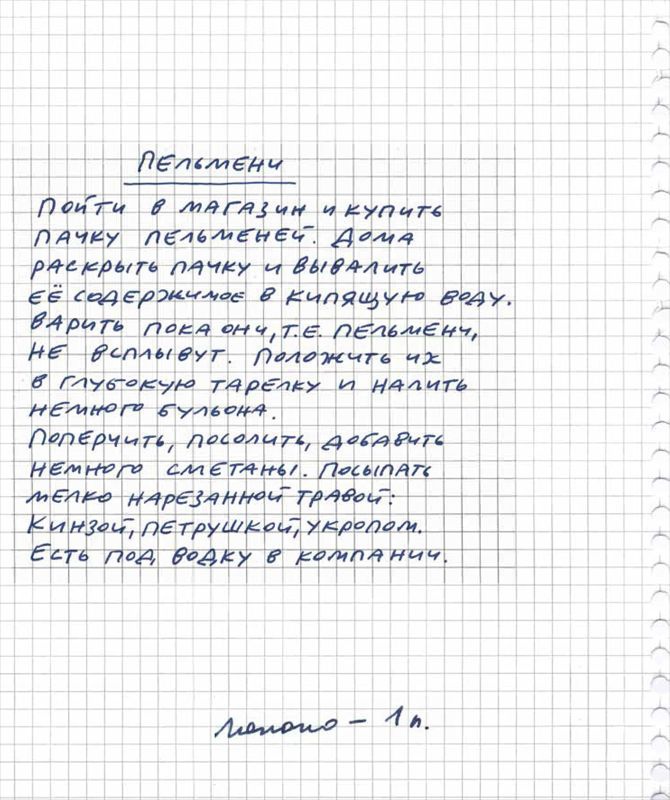 Пельмени
Пойти в магазин и купить
пачку пельменей. Дома
раскрыть пачку и вывалить
её содержимое в кипящую воду.
Варить пока они, т.е. пельмени,
не всплывут. Положить их
в глубокую тарелку и налить
немного бульона.
Поперчить, посолить, добавить
немного сметаны. Посыпать
мелко нарезанной травой:
кинзой, петрушкой, укропом.
Есть под водку в компании.
молоко – 1 п.